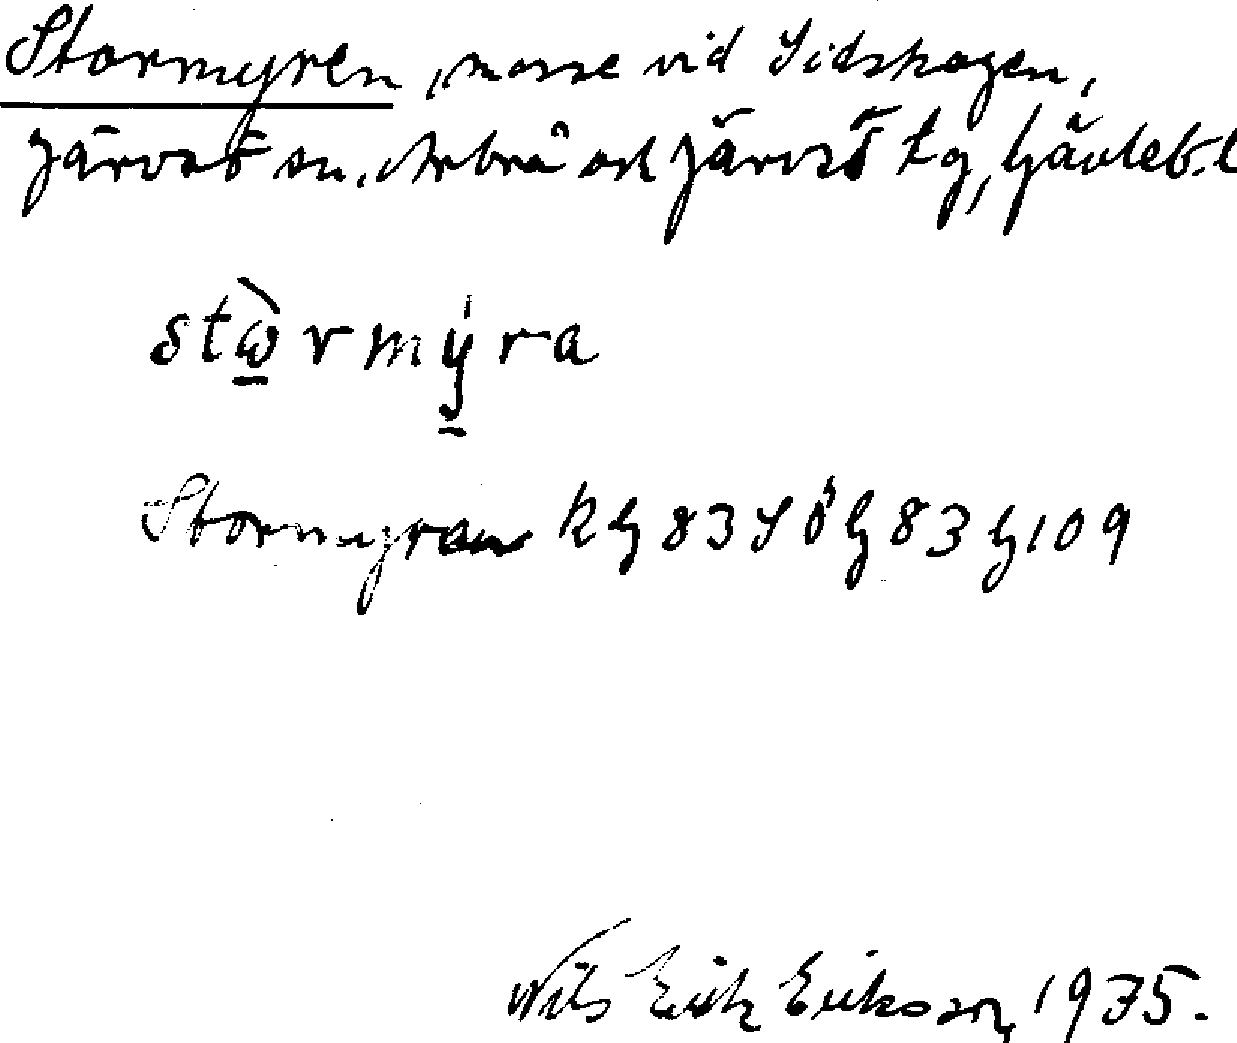 Stormyren, mosse vid Sidskogen,
Järvsö sn. Arbrå och Järvsö tg, Gävleb. l
stὼ̲rmý̲ra
Stormyran kG 83 S Ö G 83 G 109
Nils Erik Eriksson, 1935.